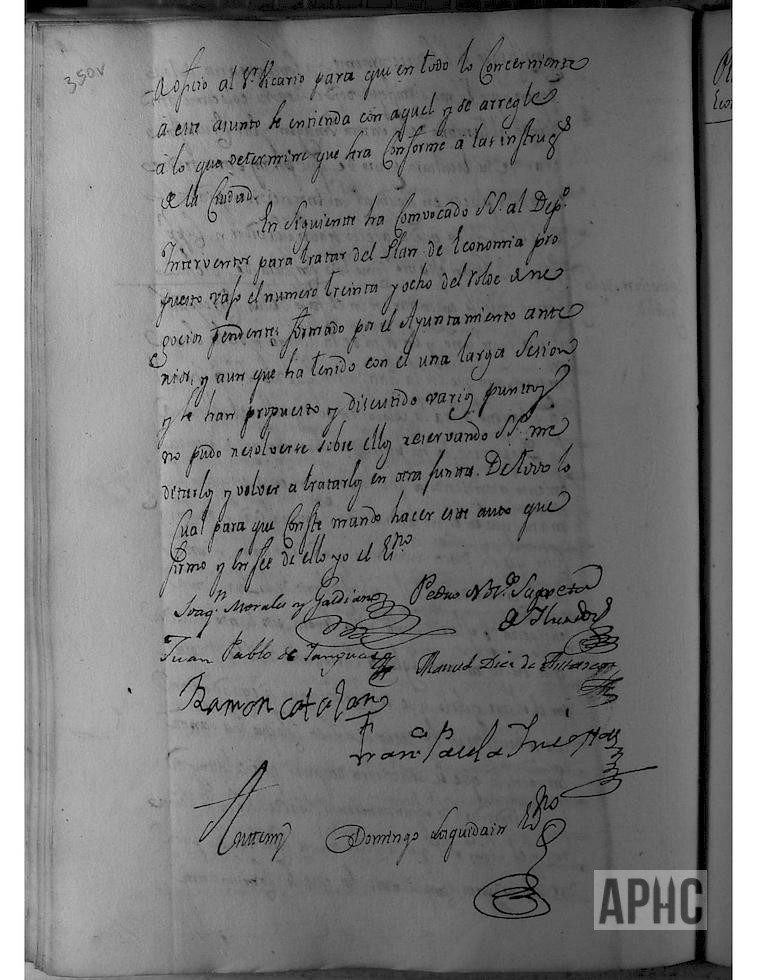 350v
oficio al Sr. Vicario para que en todo lo Concerniente
a este asunto se entienda con aquel y se arregle
a lo que determine que hra Conforme a las instrucs
de la Ciudad.
En siguiente ha Comvocado S.S. al Depo
Interventor para tratar del Plan de Economia pro
puesto vajo el numero treinta y ocho del rolde de ne
gocios pendentes formado por el Ayuntamiento ante
rior, y aun que ha tenido con el una larga Sesion
y se han propuesto y discutido varios puntos
no pudo resolverse sobre ellos reservando S.S. me
ditarlos y volver a tratarlos en otra funta. De todo lo
Cual para que Conste mando hacer este auto que
firmo y en fee de ello yo el Esno
Joaqn Morales y Galdiano Pedro
Juan Pablo de Manuel Diez de
Ramon catalan
Franco Paula
Ante mi Domingo Laquidain Esno
APHC